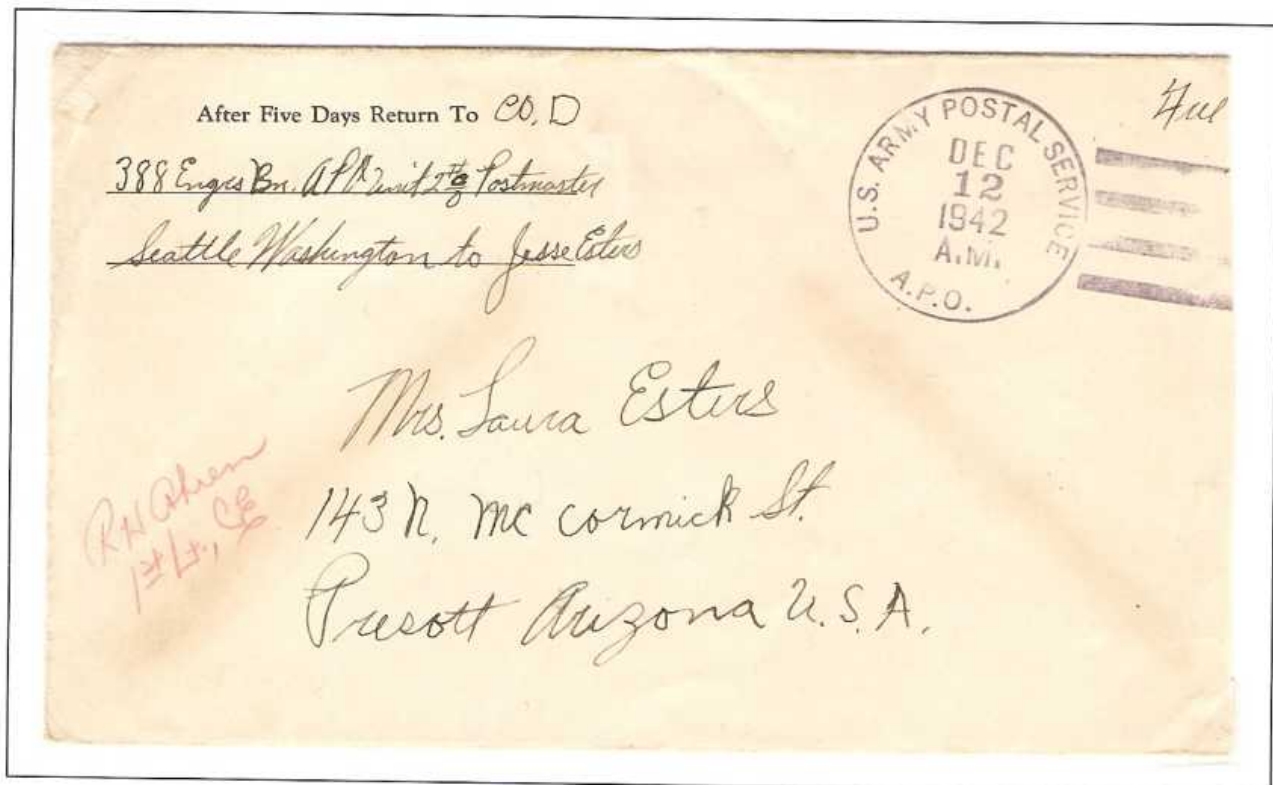 After Five Days Return To CO. D
388 Engrs Bn. APO unit 2 % Postmaster
Seattle Washington to Jesse Esters
U.S. ARMY POSTAL SERVICE
DEC
12
1942
A.M.
A.P.O.
Mrs. Laura Esters
143 N. Mc cormick St.
Presott Arizona U.S.A.
R H Ahrem
1st Lt., CE